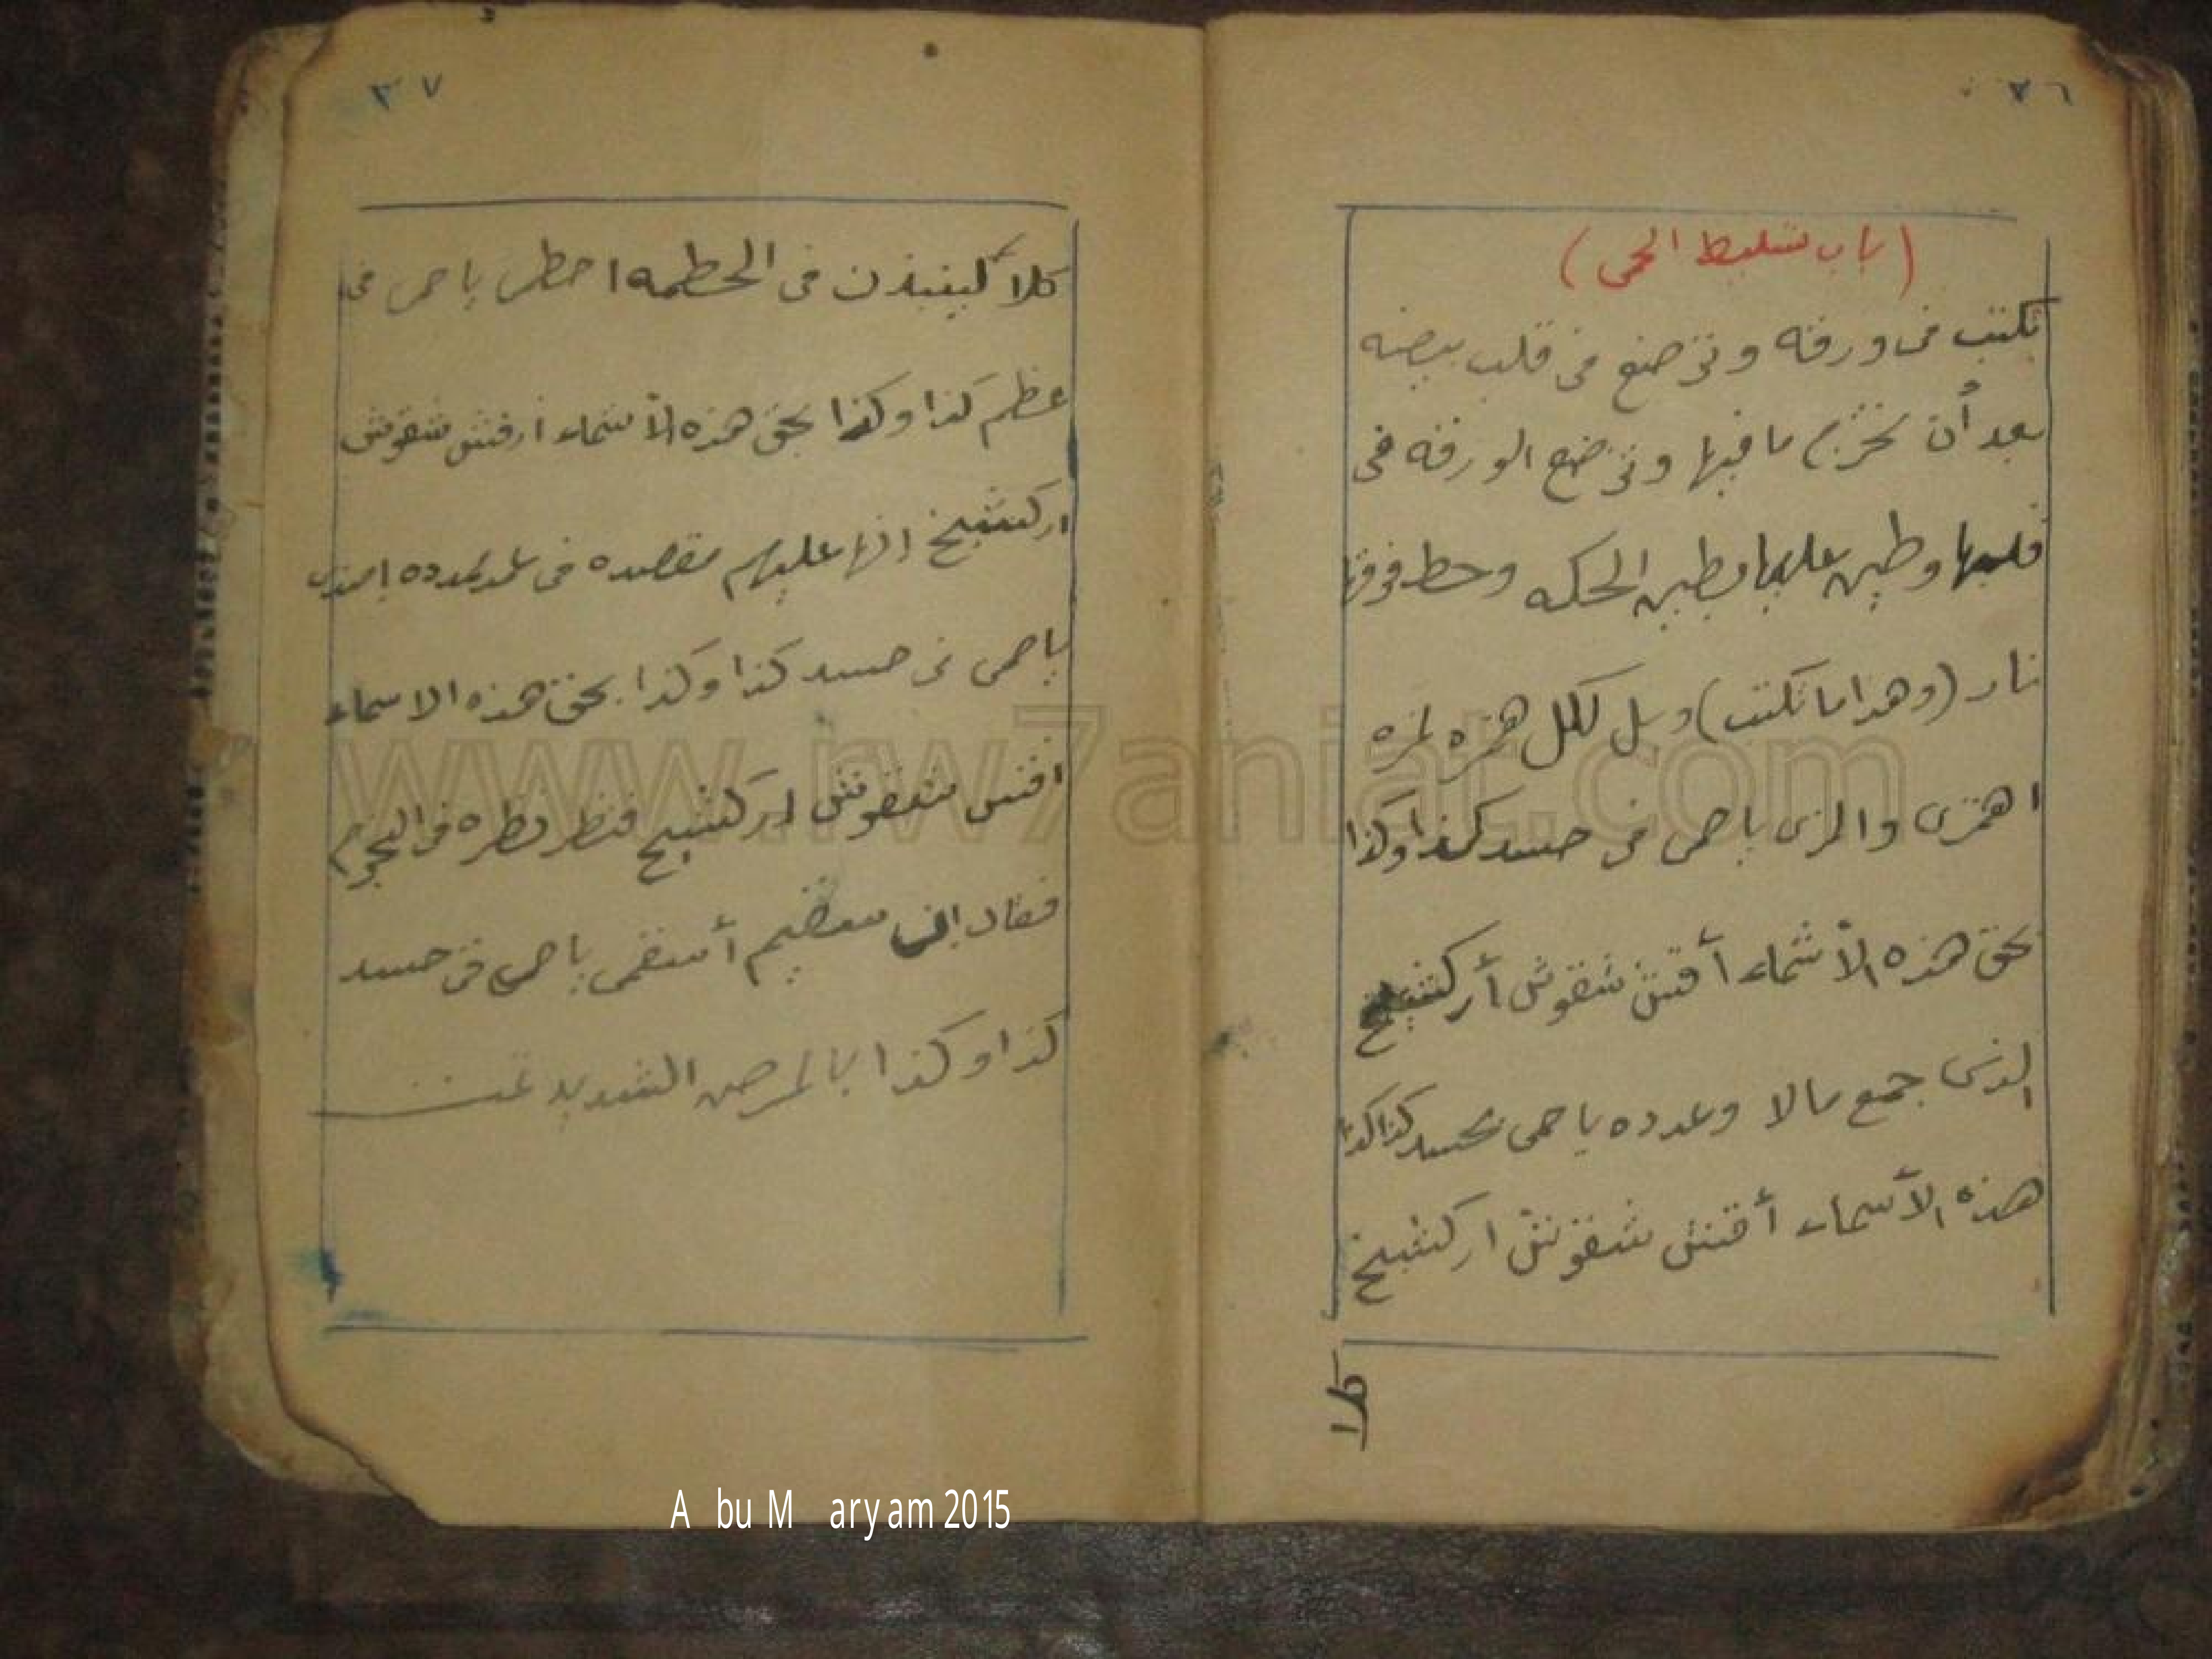 ٣٦
(باب تسليط الحمى)
تكتب فى ورقه وتوضع فى قلب بيضه
بعد أن تخرج ما فيها وتوضع الورقه فى
قلبها وطين عليها بطين الحكه وحط فوقها
نار (وهذا ما تكتب) ويل لكل همزه لمزه
اهمزى والمزى يا حمى فى جسد كذا وكذا
بحق هذه الأسماء أقش شقوش أركشيخ
الذى جمع مالا وعدده يا حمى بجسد كذا كذا
هذه الأسماء أقش شقوش اركشيخ
كلا
٣٧
كلا لينبذن فى الحطمه احطى يا حمى فى
عظم كذا وكذا بحق هذه الأسماء أرقش شقوش
اركشيخ انها عليهم مؤصده فى عمد ممدده
يا حمى فى جسد كذا وكذا بحق هذه الاسماء
اقش شقوش اركشيخ فنظر نظره فى النجوم
فقال إنى سقيم أسقمى يا حمى فى جسد
كذا وكذا بالمرض الشديد تمت
www.rw7aniat.com
Abu Maryam 2015